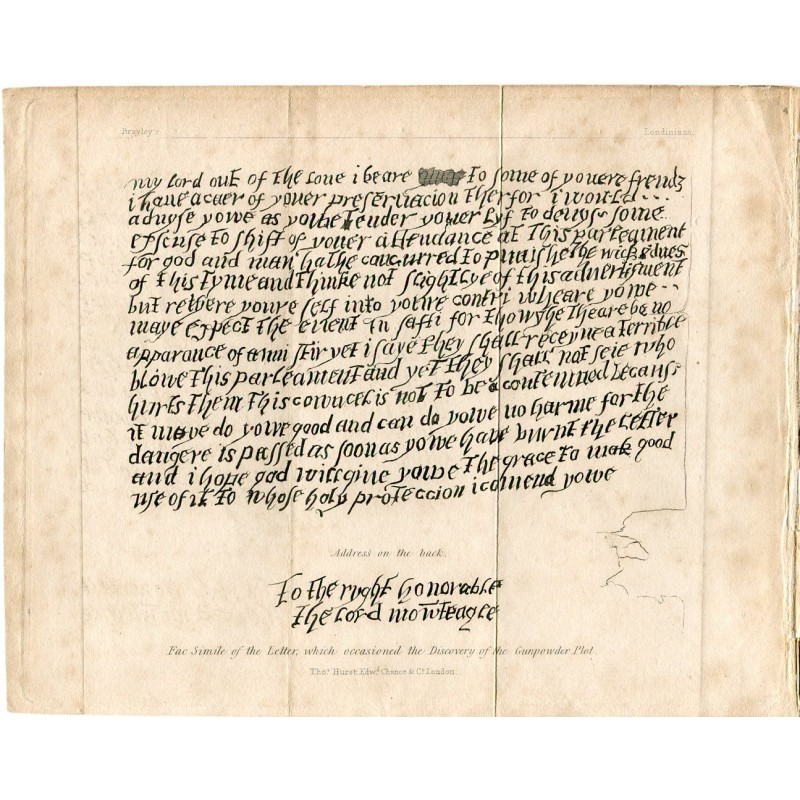 Brayley's
Londiniana.
my lord out of the love i beare to some of youere frendz
i have a caer of youer preservacion therfor i would
advyse yowe as yowe tender youer lyf to devys some
exscuse to shift of youer attendance at this parleament
for god and man hathe concurred to punishe the wickednes
of this tyme and thinke not slightlye of this advertisment
but retyere youre self into youre contri wheare yowe
maye expect the event in safti for thowghe theare be no
apparance of anni stir yet i saye they shall receyve a terrible
blowe this parleament and yet they shall not seie who
hurts them this cowncel is not to be contemned because
it maye do yowe good and can do yowe no harme for the
dangere is passed as soon as yowe have burnt the letter
and i hope god will give yowe the grace to mak good
use of it to whose holy proteccion i comend yowe
Address on the back.
To the ryght honorable
the lord mowteagle
Fac Simile of the Letter, which occasioned the Discovery of the Gunpowder Plot.
Thos. Hurst, Edwd. Chance & Co. London.